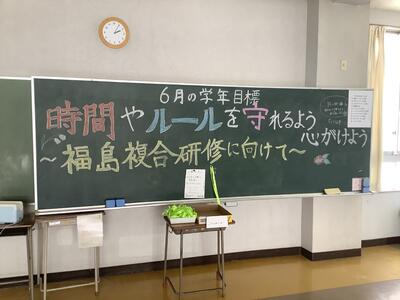 6月の学年目標
時間やルールを守れるよう
心がけよう
～福島複合研修に向けて～